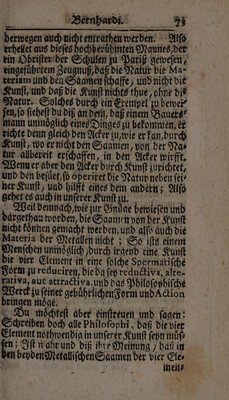 Bernhardi. 73
derwegen auch nicht entrathen werden. Also
erhellet aus dieses hochberühmten Mannes, der
ein Obrister der Schulen zu Pariß gewesen,
eingeführtem Zeugnuß, daß die Natur die Ma-
teriam und den Saamen schaffe, und nicht die
Kunst, und daß die Kunst nichts thue, ohne die
Natur. Solches durch ein Exempel zu bewei-
sen, so siehest du diß an deß, daß einem Bauers-
mann unmöglich eines Dinges zu bekommen, er
richte denn gleich den Acker zu, wie er kan, durch
Kunst, wo er nicht den Saamen, von der Na-
tur allbereit erschaffen, in den Acker wirfft.
Wenn er aber den Acker durch Kunst zurichtet,
und den besäet, so operiret die Natur neben sei-
ner Kunst, und hilfft eines dem andern; Also
gehet es auch in unserer Kunst zu.
Weil dennach, wie zur Gnüge bewiesen und
dargethan worden, die Saamen von der Kunst
nicht können gemacht werden, und also auch die
Materia der Metallen nicht; So ists einem
Menschen unmöglich, durch irgend eine Kunst
die vier Element in eine solche Spermatische
Form zu reduciren, die da sey reductiva, alte-
rativa, aut attractiva, und das Philosophische
Werck zu seiner gebührlichen Form und Action
bringen möge.
Du möchtest aber einstreuen und sagen:
Schreiben doch alle Philosophi, daß die vier
Element nothwendig in unserer Kunst seyn müs-
sen; Ist wahr und diß ihre Meinung, daß in
den beyden Metallischen Saamen der vier Ele-
men-